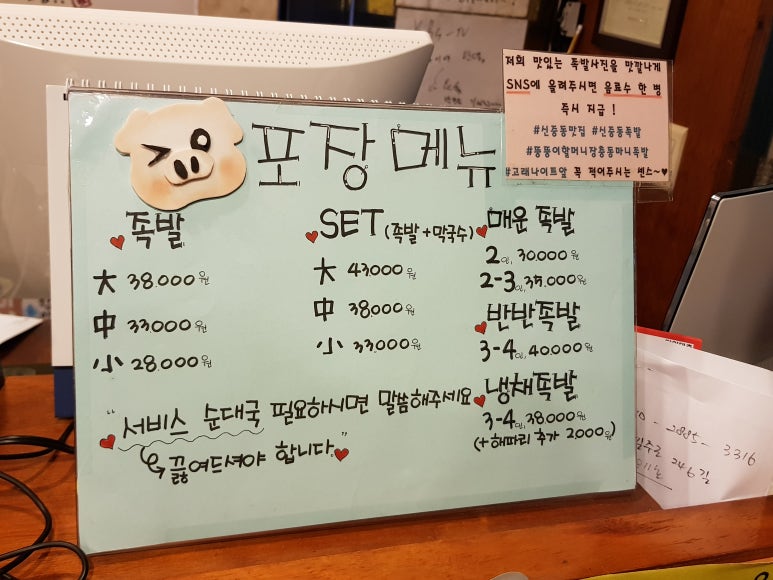 저희 맛있는 족발사진을 맛깔나게
SNS에 올려주시면 음료수 한 병
즉시 지급!
#신중동맛집 #신중동족발
#뚱뚱이할머니장충동마니족발
#고래나이트앞 꼭 적어주시는 센스~♥
포장메뉴
족발
大 38.000원
中 33000원
小 28.000원
SET (족발+막국수)
大 43000원
中 38000원
小 33.000원
매운 족발
2인, 30.000원
2-3인, 35.000원
반반족발
3-4인, 40.000원
냉채족발
3-4인, 38.000원
(+해파리 추가 2,000원)
"서비스 순대국 필요하시면 말씀해주세요
끓여드셔야 합니다."
2885-3316
246길